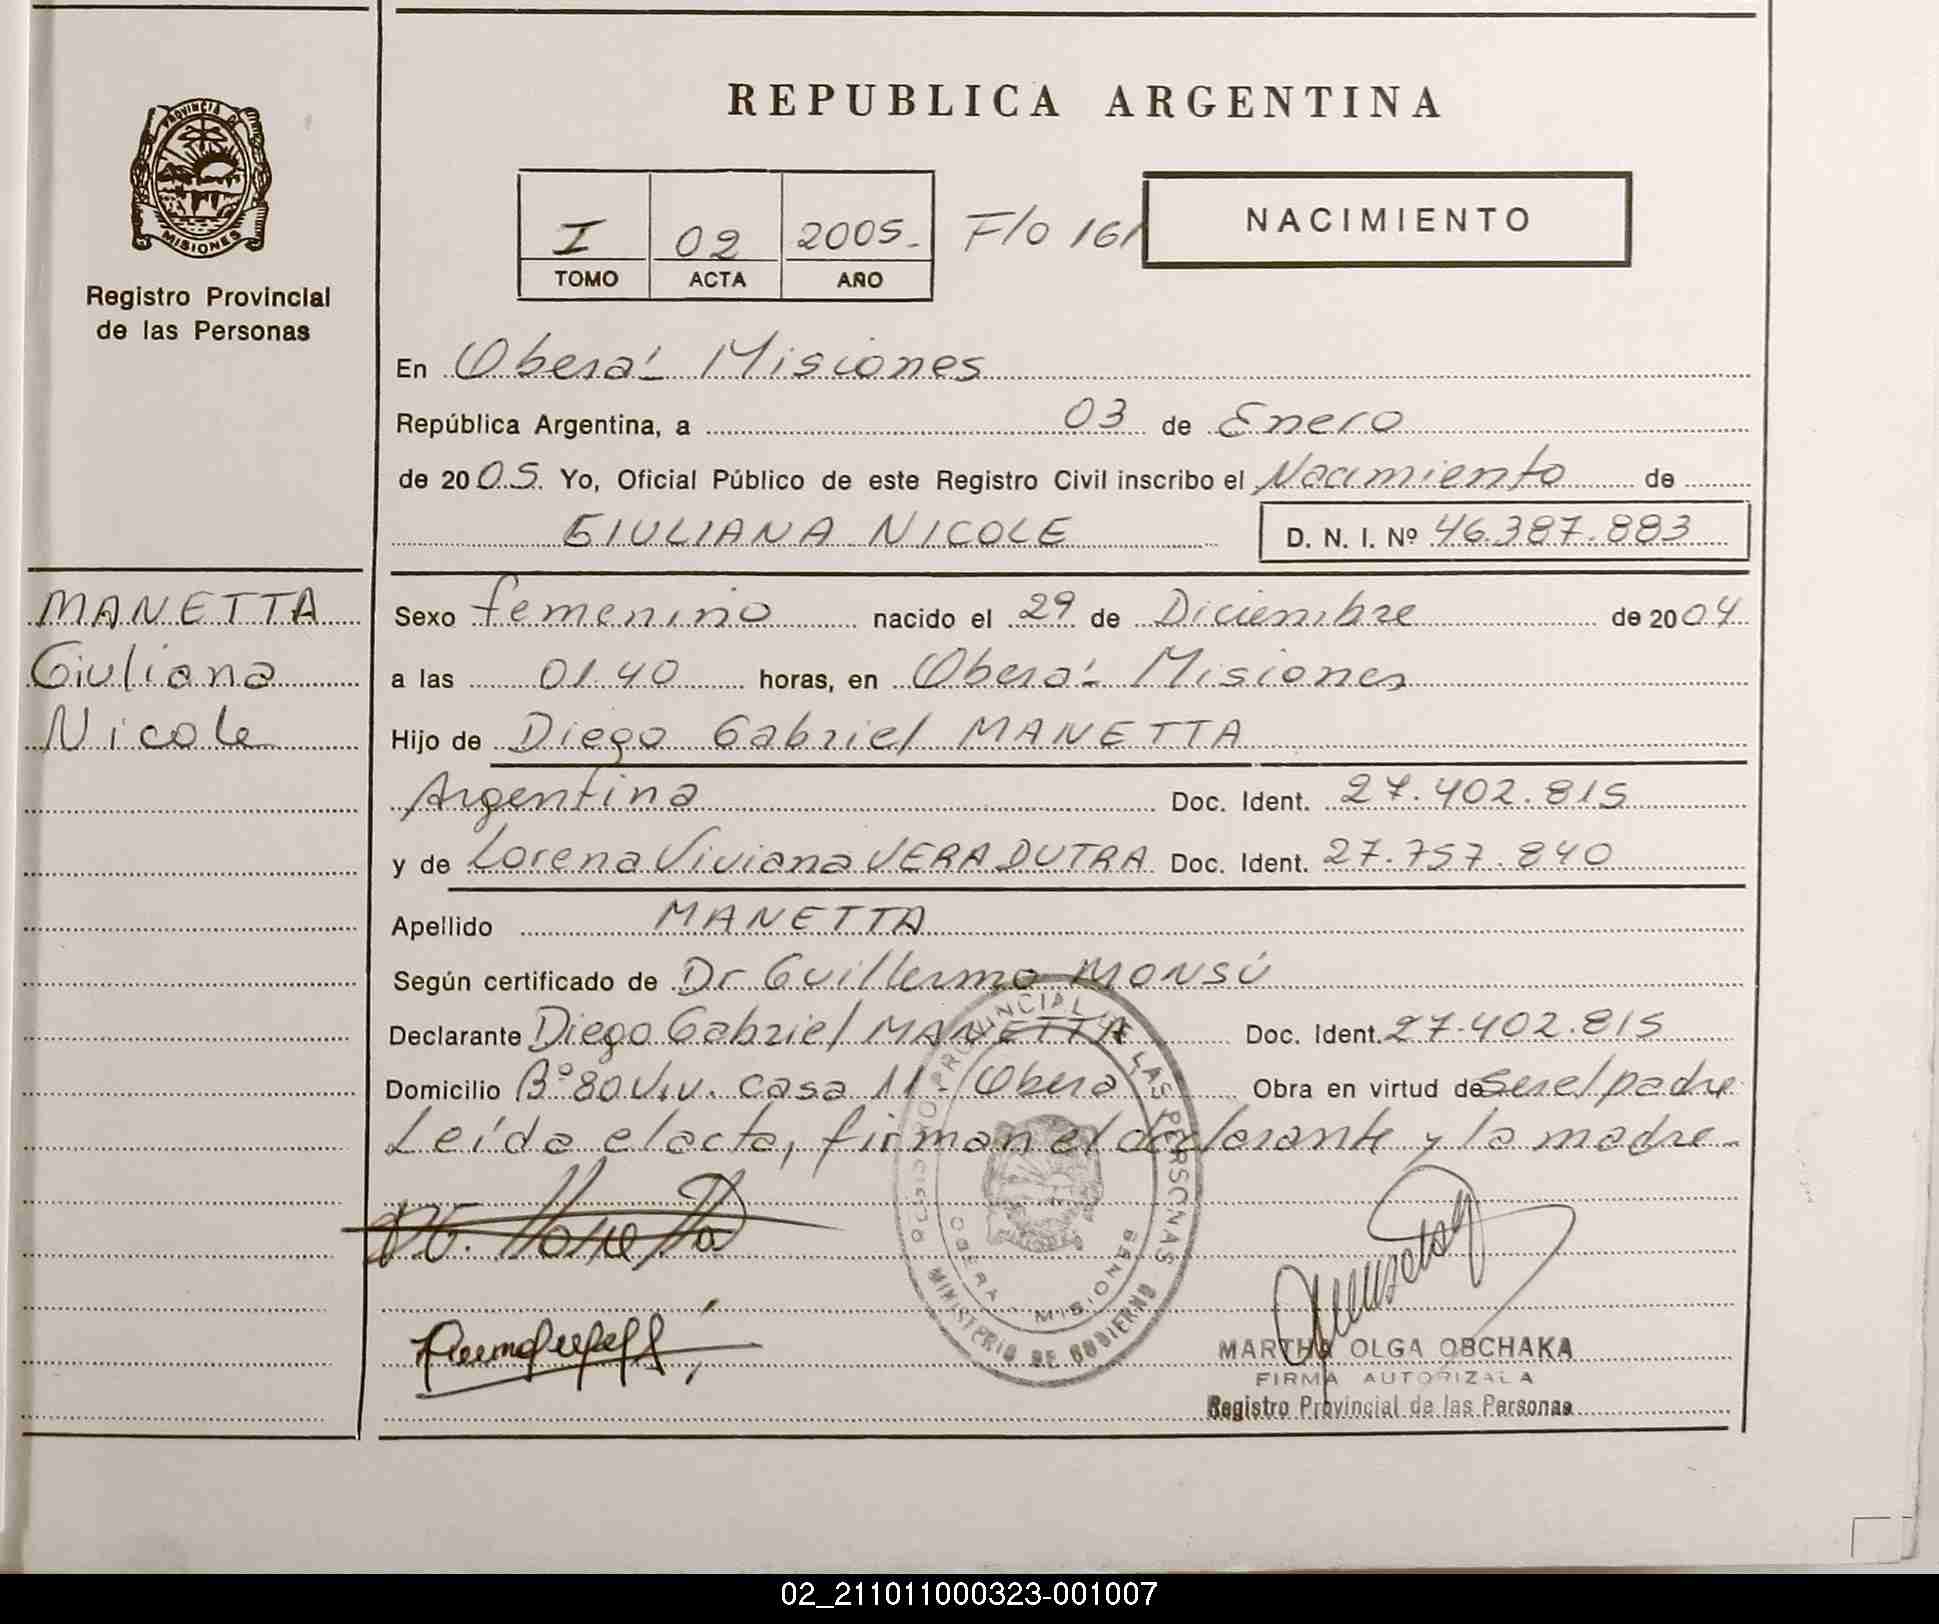 REPUBLICA ARGENTINA
PROVINCIA DE
MISIONES
Registro Provincial
de las Personas
I 02 2005.
TOMO ACTA AÑO
F/o 161
NACIMIENTO
En Oberá - Misiones
República Argentina, a 03 de Enero
de 2005. Yo, Oficial Público de este Registro Civil inscribo el Nacimiento de
GIULIANA NICOLE D. N. I. Nº 46.387.883
MANETTA
Giuliana
Nicole
Sexo femenino nacido el 29 de Diciembre de 2004
a las 01.40 horas, en Oberá - Misiones
Hijo de Diego Gabriel MANETTA
Argentina Doc. Ident. 27.402.815
y de Lorena Viviana VERA DUTRA Doc. Ident. 27.757.840
Apellido MANETTA
Según certificado de Dr Guillermo MONSÚ
Declarante Diego Gabriel MANETTA Doc. Ident. 27.402.815
Domicilio Bº 80 Viv. Casa 11. Obera Obra en virtud de ser el padre
Leída el acta, firman el declarante y la madre.
REGISTRO PROVINCIAL DE LAS PERSONAS
OBERA - MISIONES
MINISTERIO DE GOBIERNO
MARTHA OLGA OBCHAKA
FIRMA AUTORIZADA
Registro Provincial de las Personas
02_211011000323-001007